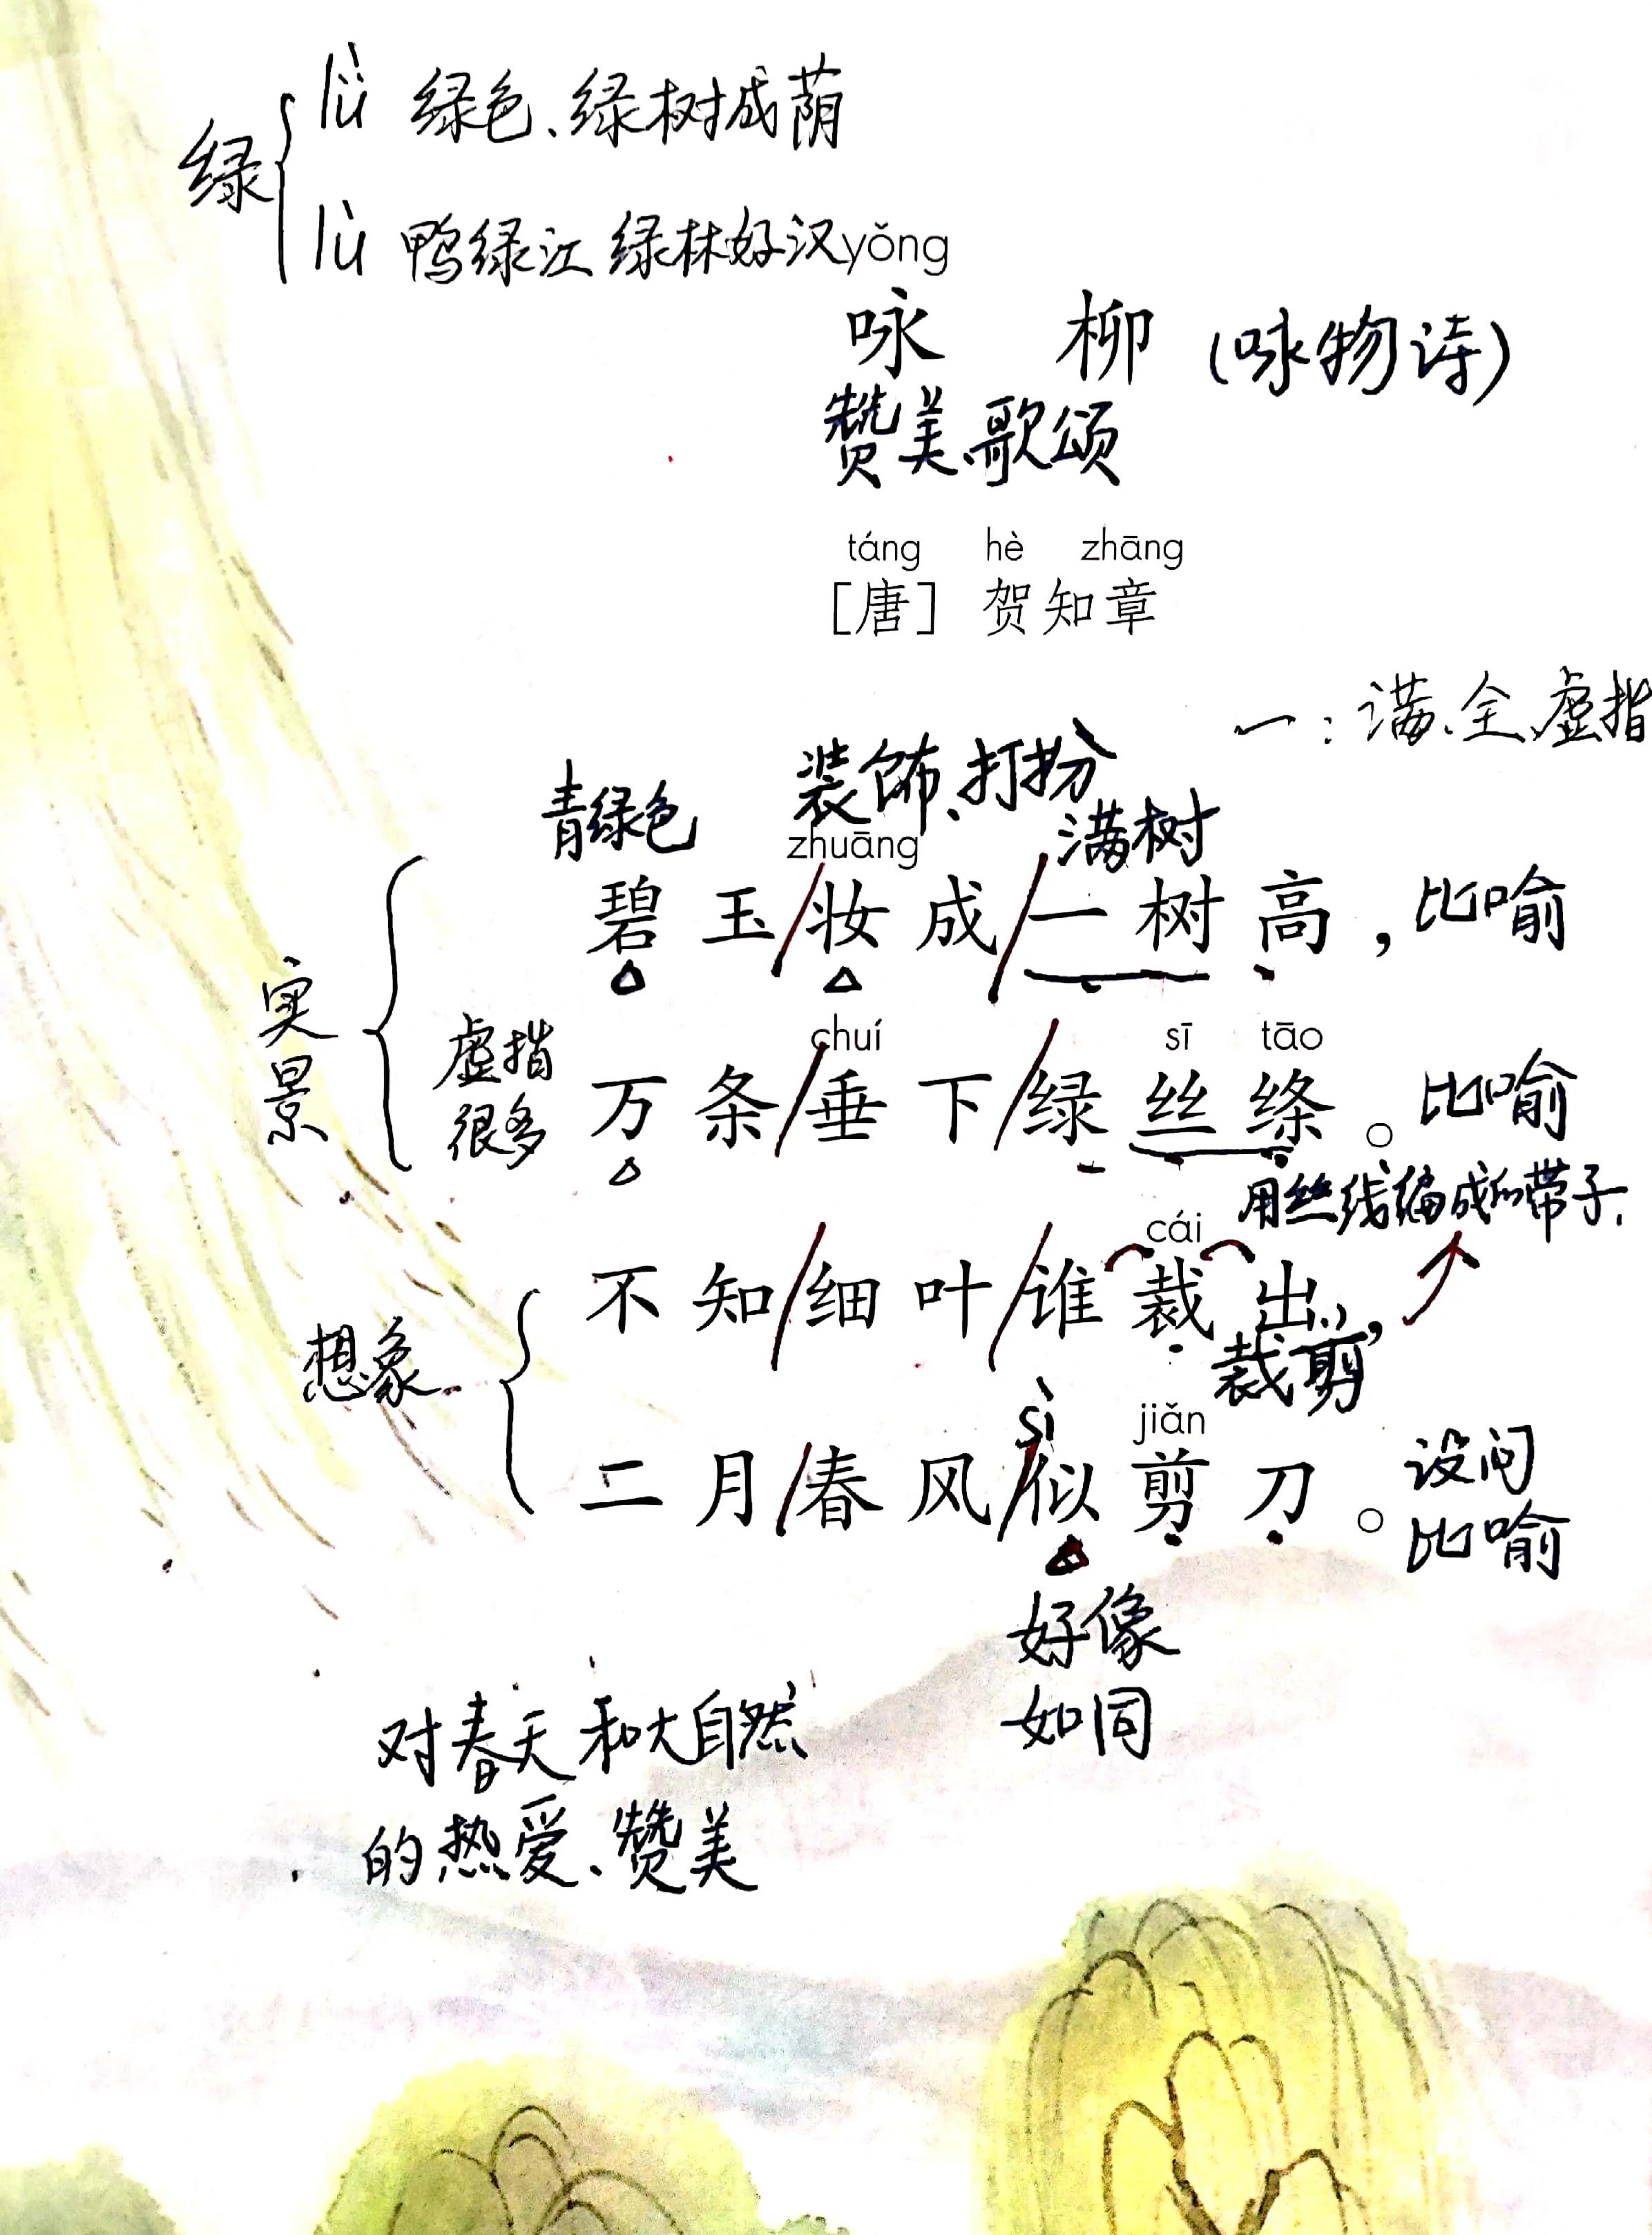 绿
lǜ 绿色、绿树成荫
lù 鸭绿江 绿林好汉
yǒng
咏 柳 (咏物诗)
赞美、歌颂
táng hè zhāng
[唐] 贺知章
一：满、全、虚指
青绿色 装饰、打扮
zhuāng 满树
碧玉/妆成/一树高，比喻
实景
chuí sī tāo
虚指很多
万条/垂下/绿丝绦。比喻
用丝线编成的带子.
cái
不知/细叶/谁裁出，
裁剪
想象
sì jiǎn
二月/春风/似剪刀。设问
比喻
好像
如同
对春天和大自然
的热爱、赞美